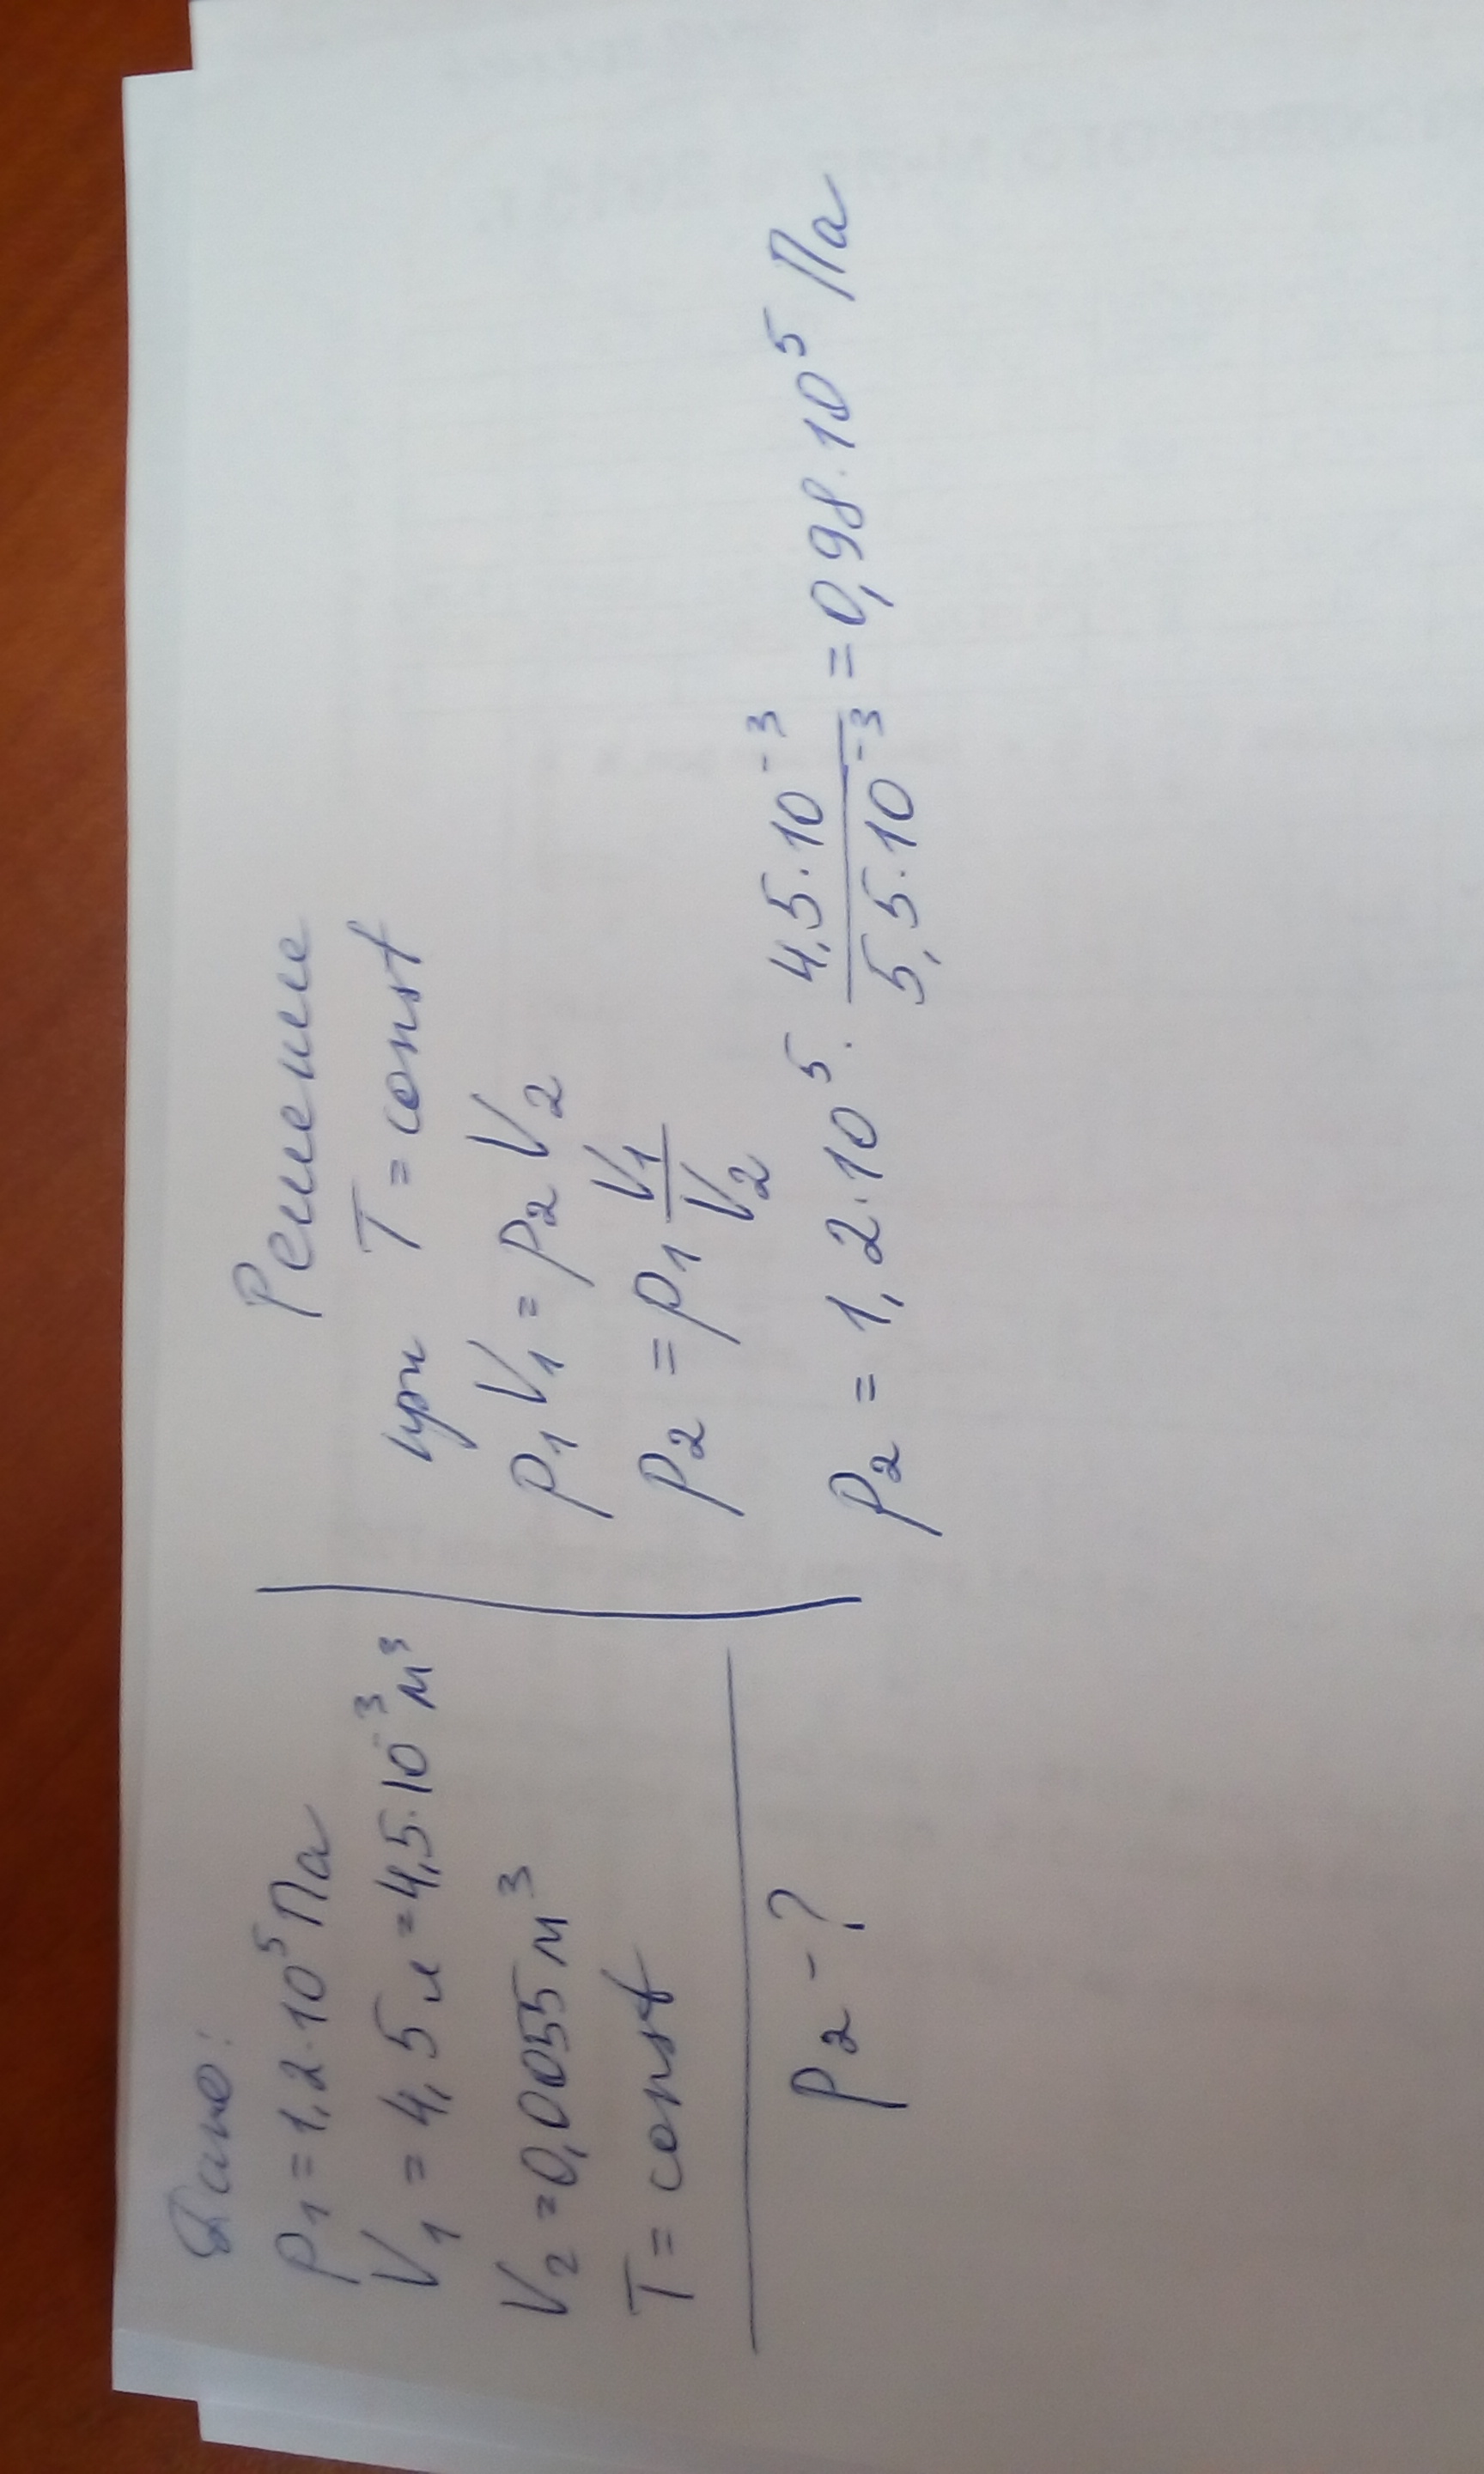 Дано:
P₁ = 1,2·10⁵ Па
V₁ = 4,5 л = 4,5·10⁻³ м³
V₂ = 0,0055 м³
T = const
P₂ - ?
Решение
при T = const
P₁ V₁ = P₂ V₂
P₂ = P₁ V₁/V₂
P₂ = 1,2·10⁵ · 4,5·10⁻³/5,5·10⁻³ = 0,98·10⁵ Па